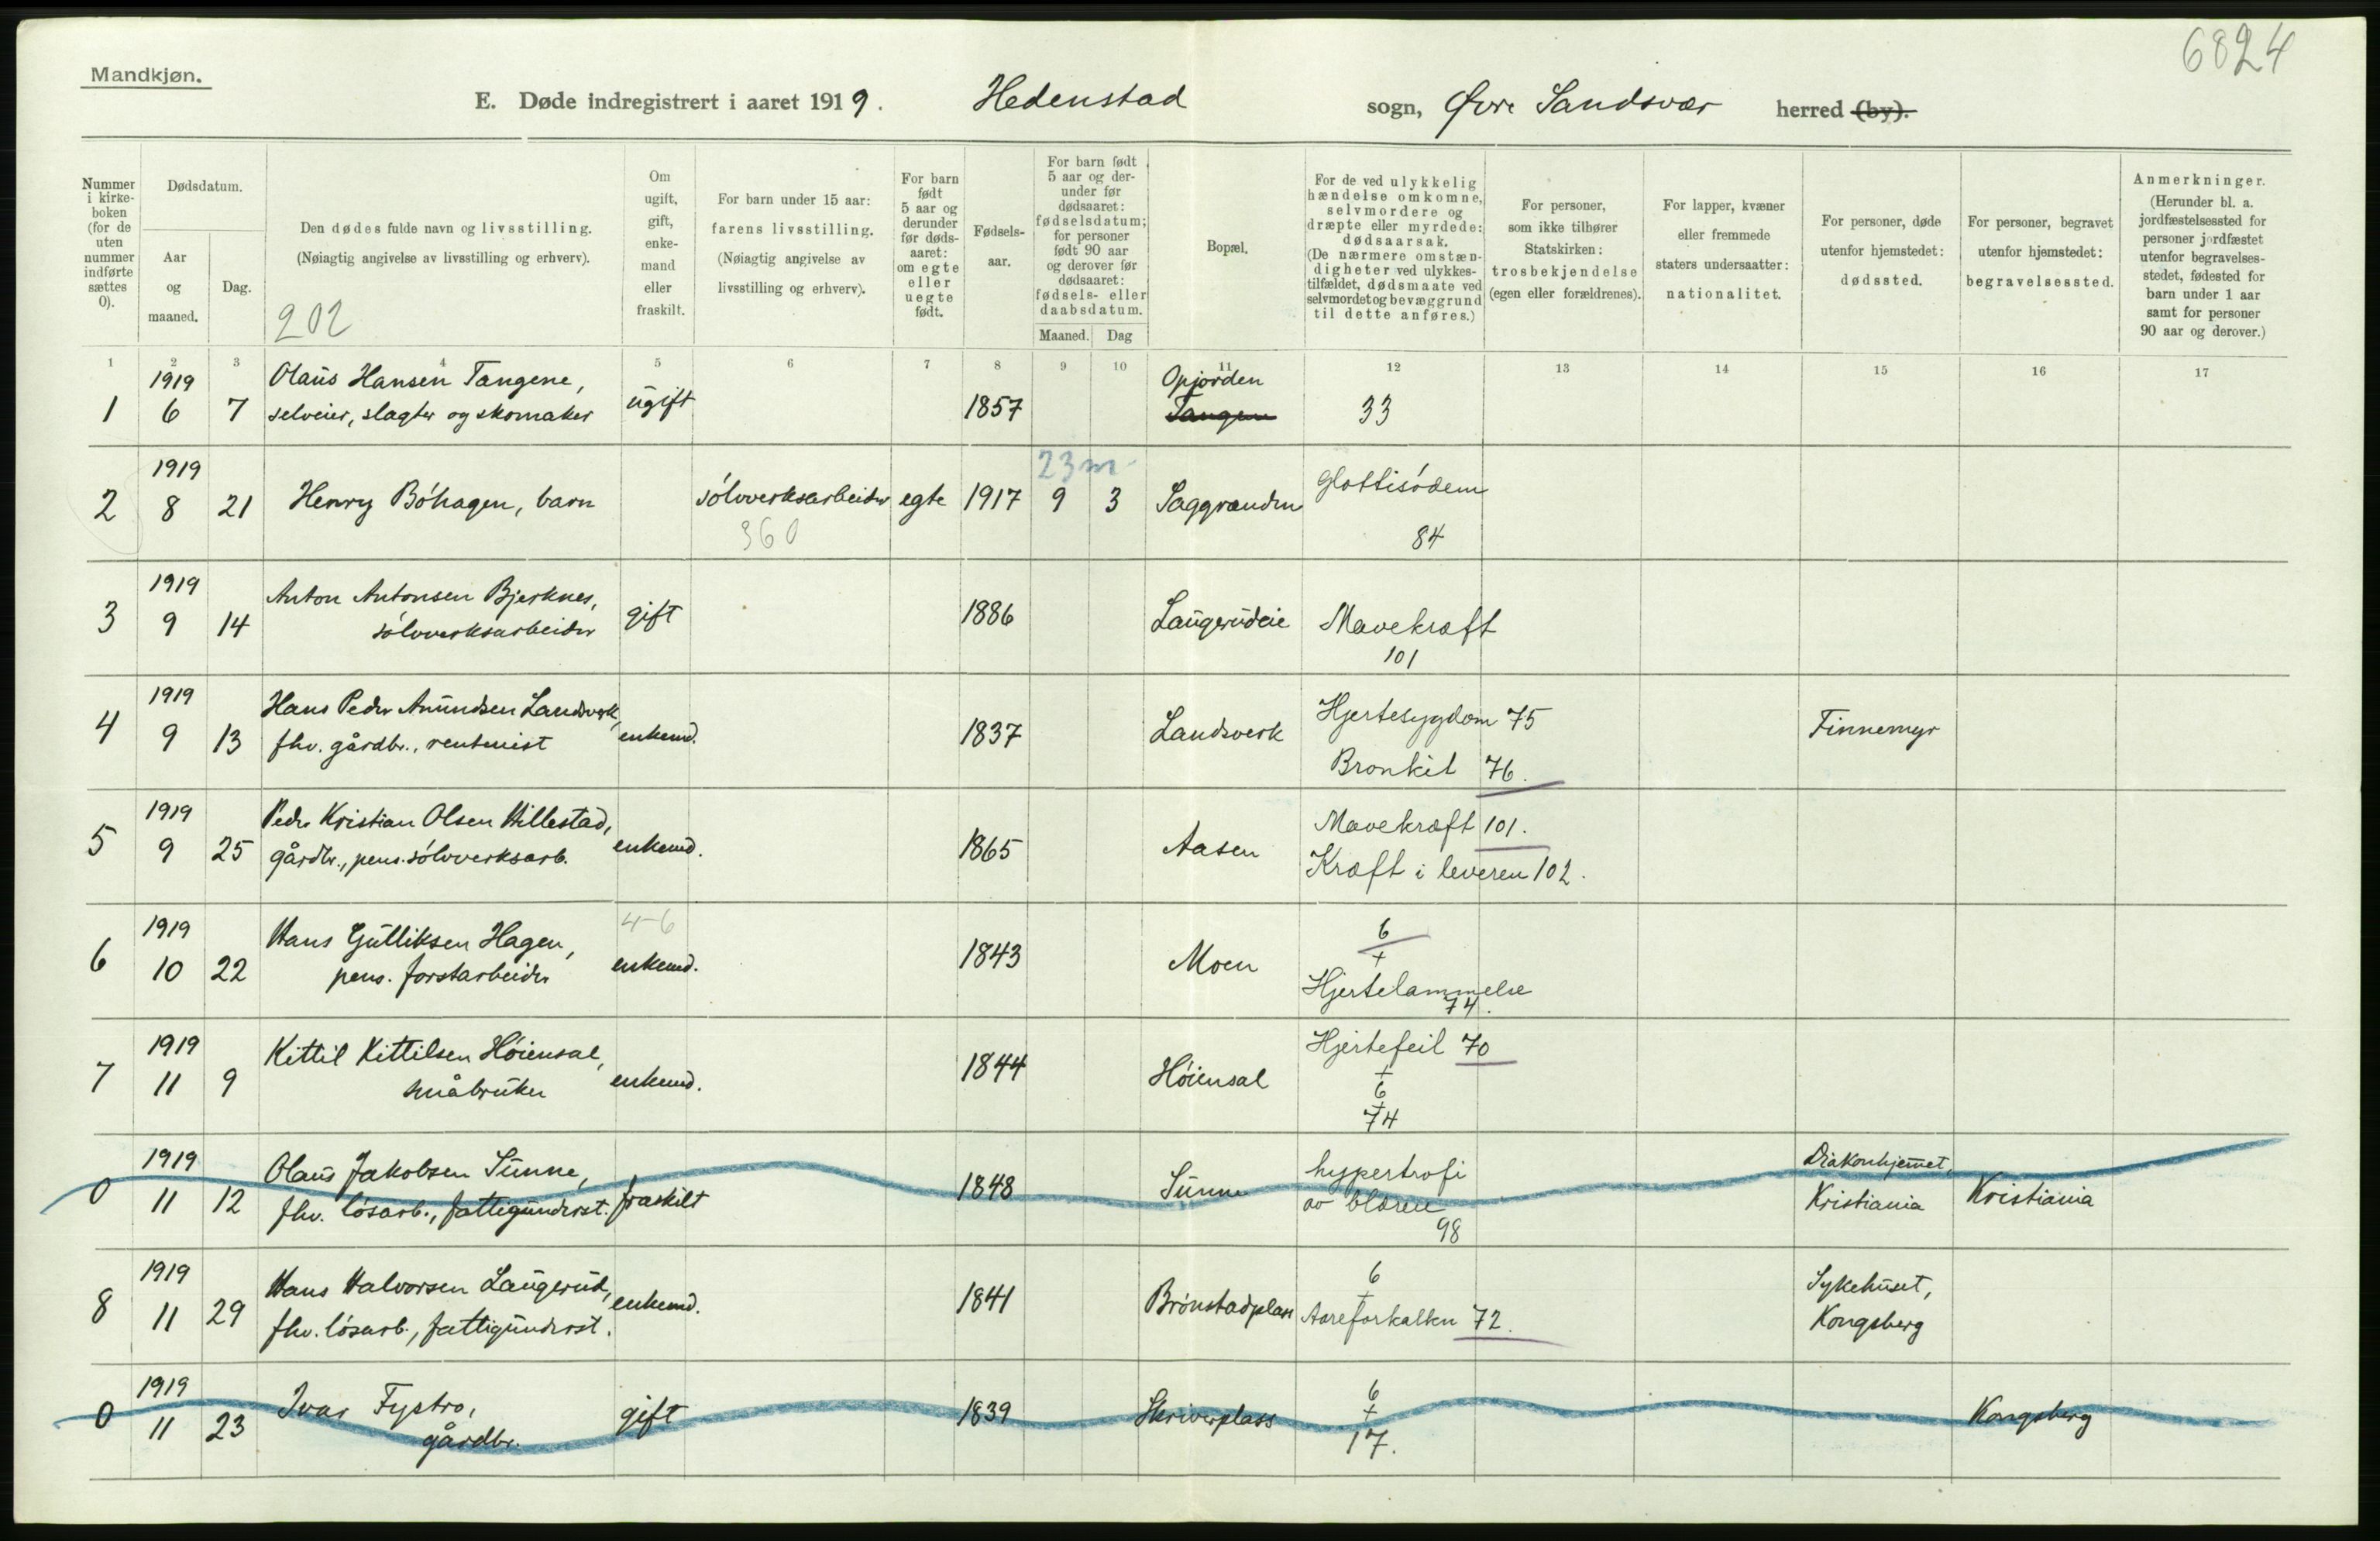 6824
Mandkjøn.
E. Døde indregistrert i aaret 1919. Hedenstad sogn, Øvre Sandsvær herred (by).
Nummer i kirkeboken (for de uten nummer indførte sættes 0).
Dødsdatum.
Aar og maaned.
Dag.
Den dødes fulde navn og livsstilling.
(Nøiagtig angivelse av livsstilling og erhverv).
202
Om ugift, gift, enkemand eller fraskilt.
For barn under 15 aar: farens livsstilling. (Nøiagtig angivelse av livsstilling og erhverv).
For barn født 5 aar og derunder før dødsaaret: om egte eller uegte født.
Fødselsaar.
For barn født 5 aar og derunder før dødsaaret: fødselsdatum; for personer født 90 aar og derover før dødsaaret: fødsels- eller daabsdatum.
Maaned. Dag
Bopæl.
For de ved ulykkelig hændelse omkomne, selvmordere og dræpte eller myrdede: dødsaarsak. (De nærmere omstændigheter ved ulykkestilfældet, dødsmaate ved selvmordet og bevæggrund til dette anføres.)
For personer, som ikke tilhører Statskirken: trosbekjendelse (egen eller forældrenes).
For lapper, kvæner eller fremmede staters undersaatter: nationalitet.
For personer, døde utenfor hjemstedet: dødssted.
For personer, begravet utenfor hjemstedet: begravelsessted.
Anmerkninger. (Herunder bl. a. jordfæstelsessted for personer jordfæstet utenfor begravelsesstedet, fødested for barn under 1 aar samt for personer 90 aar og derover.)
1 2 3 4 5 6 7 8 9 10 11 12 13 14 15 16 17
1919 Olaus Hansen Tangene, Opjorden
1 6 7 selveier, slagter og skomaker ugift 1857 Tangen 33
1919 23 m
2 8 21 Henry Böhagen, barn sölvverksarbeider egte 1917 9 3 Saggranden Glottisödem
360 84
1919 Anton Antonsen Bjerknes,
3 9 14 sölvverksarbeider gift 1886 Laugerudeie Mavekræft
101
1919 Hans Peder Amundsen Landverk, Hjertesygdom 75
4 9 13 fhv. gårdbr., rentenist enkemd. 1837 Landsverk Finnemyr
Bronkit 76.
1919 Peder Kristian Olsen Hillestad, Mavekræft 101.
5 9 25 gårdbr., pens. sölvverksarb. enkemd. 1865 Aasen
Kræft i leveren 102.
1919 Hans Gulliksen Hagen, 4-6 6
6 10 22 pens. forstarbeider enkemd. 1843 Moen +
Hjertelammelse
74.
1919 Kittil Kittilsen Höiensal, Hjertefeil 70
7 11 9 småbruker enkemd. 1844 Höiensal +
6
+
74
1919 Olaus Jakobsen Sunne, hypertrofi Diakonhjemmet,
0 11 12 fhv. lösarb., fattigunderst. fraskilt 1848 Sunne av blæren Kristiania Kristiania
98
1919 Hans Halvorsen Laugerud, 6 Sykehuset,
8 11 29 fhv. lösarb., fattigunderst. enkemd. 1841 Brönstadplass + Aareforkalkn 72. Kongsberg
1919 Ivar Fystro, 6
0 11 23 gårdbr. gift 1839 Skriverplass + Kongsberg
17.